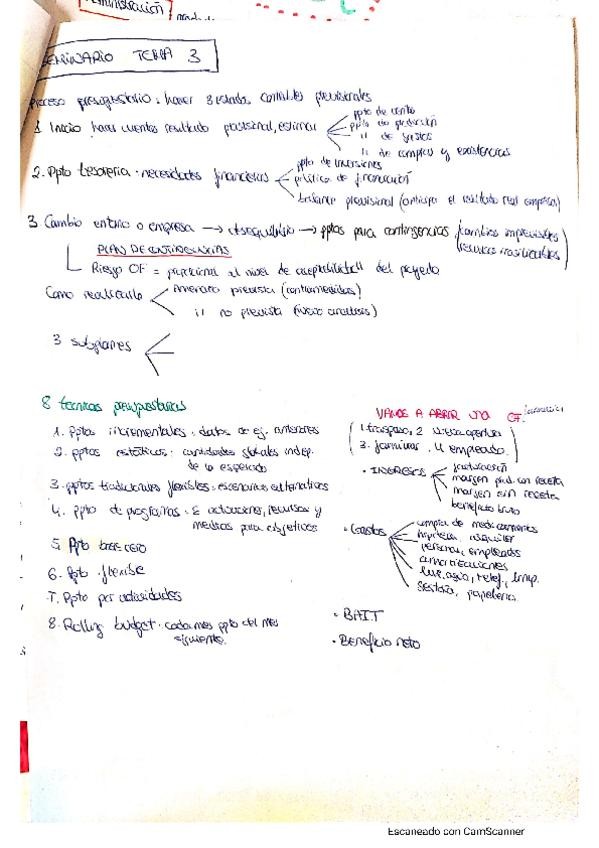 ministración
SEMINARIO TEMA 3
Proceso presupuestario: hacer 3 estados contables previsionales
1. Inicio hacer cuentas resultado previsional, estimar
ppto de venta
ppto de producción
" de gastos
" de compras y existencias
2. Ppto tesorería: necesidades financieras
ppto de inversiones
política de financiación
balance previsional (anticipa el resultado real empresa)
3 Cambio entorno o empresa → desequilibrio → pptos para contingencias (cambios imprevisibles
PLAN DE CONTINGENCIAS
Riesgo OF = proporcional al nivel de aceptabilidad del proyecto
Como realizarlo
Amenaza prevista (contramedidas)
" no prevista (nuevo análisis)
3 subplanes
8 técnicas presupuestarias
1. Pptos incrementales: datos de ej. anteriores
2. pptos estáticos: cantidades globales indep.
de lo esperado
3. pptos tradicionales flexibles: escenarios alternativos
4. ppto de programas: actuaciones, recursos y
medios para objetivos
5. Ppto base cero
6. Ppto flexible
7. Ppto por actividades
8. Rolling budget: cada mes ppto del mes
siguiente.
VAMOS A ABRIR UNA OF.
1. traspaso, 2 nueva apertura
3. familiar, 4 empleado.
• INGRESOS
facturación
margen prod. con receta
margen sin receta
beneficio bruto
• Gastos
compra de medicamentos
hipoteca, alquiler
personal, empleados
amortizaciones
luz, agua, telef, limp.
gestoría, papelería
• BAIT
• Beneficio neto
Escaneado con CamScanner